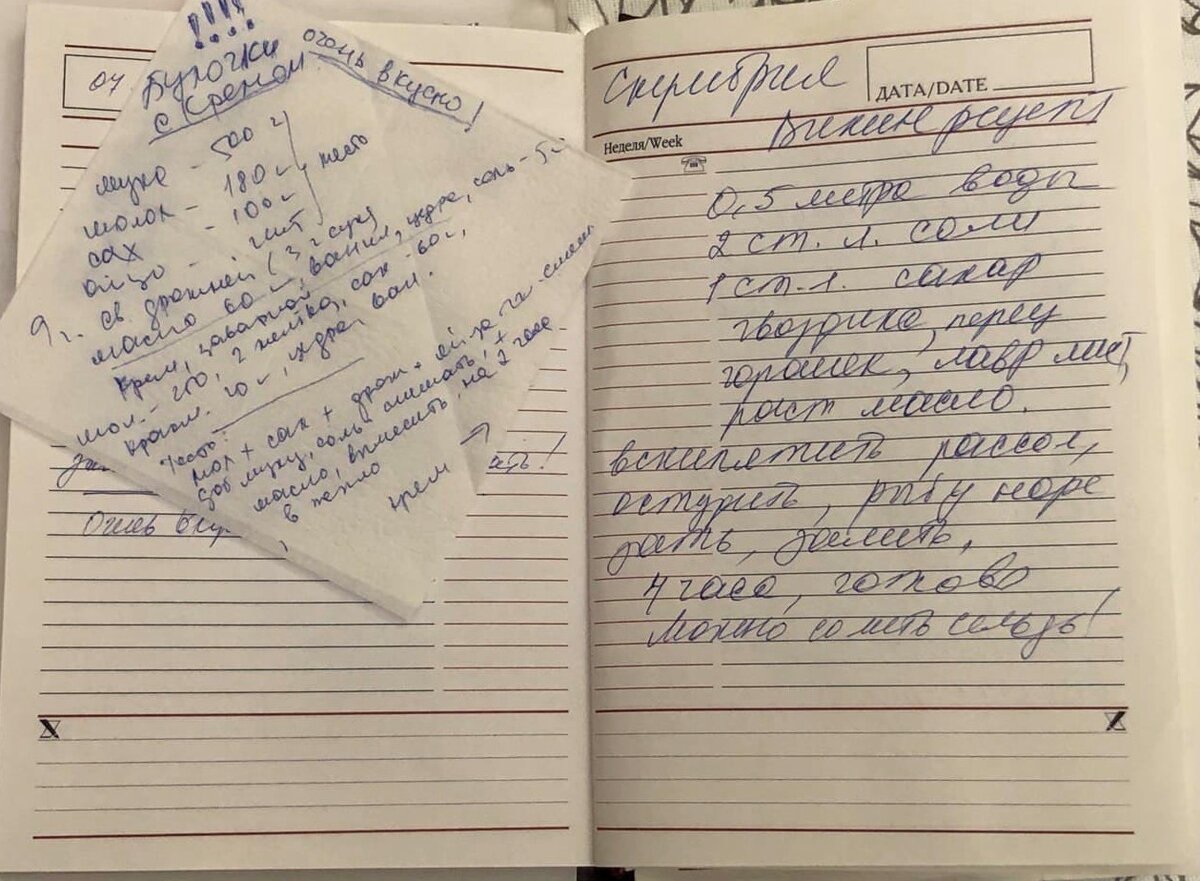 04
!!!!
Булочки
с кремом
очень вкусно!
мука - 500 г
молок - 180 г
сах - 100 г
тесто
яйцо - 1 шт
9 г. св. дрожжей (3 г сух)
масло 60 г, ванил, цедра, соль - 5 г
Крем, заварной
мол. - 250, 2 желтка, сах - 60 г,
крахм. 20 г, цедра, ван.
Тесто:
мол + сах + дрож + яй-
доб муку, соль смешать, +
масло, вымесить, на 2 часа
в тепло
крем →
ать!
Очень вку
Скумбрия
ДАТА/DATE
Неделя/Week
Викин рецепт
0,5 литра воды
2 ст. л. соли
1 ст. л. сахар
гвоздика, перец
горошек, лавр лист,
раст масло.
вскипятить рассол,
остудить, рыбу наре
зать, залить,
4 часа, готово
Можно солить сельдь!